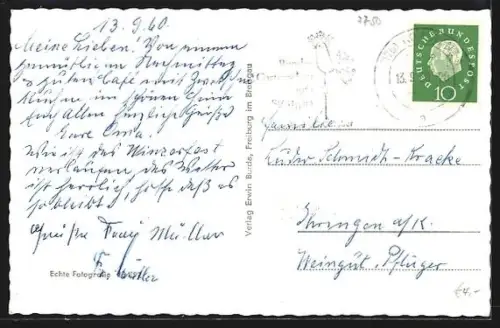 13.9.60
Meine Lieben. Von einem
gemütlichen Nachmittag
guten Café mit Zwetsch
Kuchen im schönen
Euch Allen herzliche Grüße
Eure Oma.
Wie ist das Winzerfest
verlaufen das Wetter
ist herrlich hoffe daß es
so bleibt
Grüße Frau Müller
Echte Fotografie
Verlag Erwin Burda, Freiburg im Breisgau
27.50
DEUTSCHE BUNDESPOST
10
13.
a
Familie
Schmidt-Kracke
Ihringen a/K.
Weingut Pflüger
€4.-